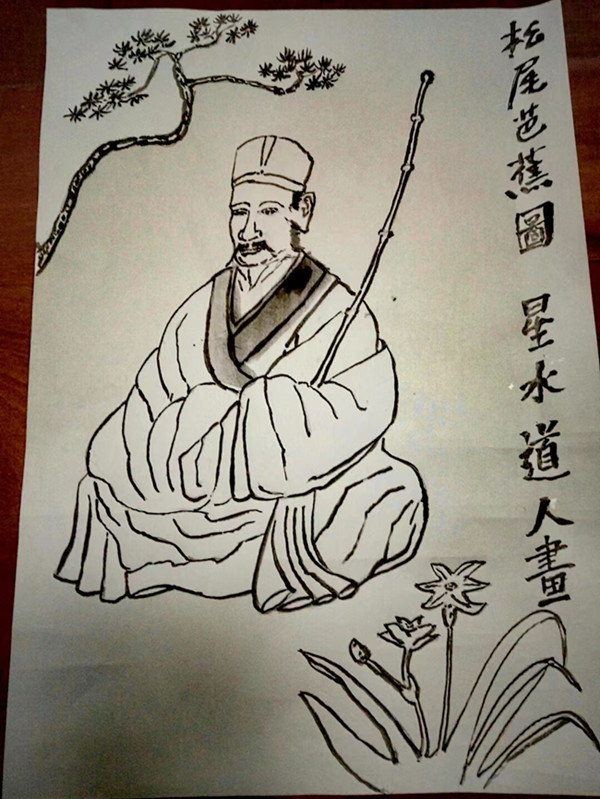 松尾芭蕉圖 星水道人畫